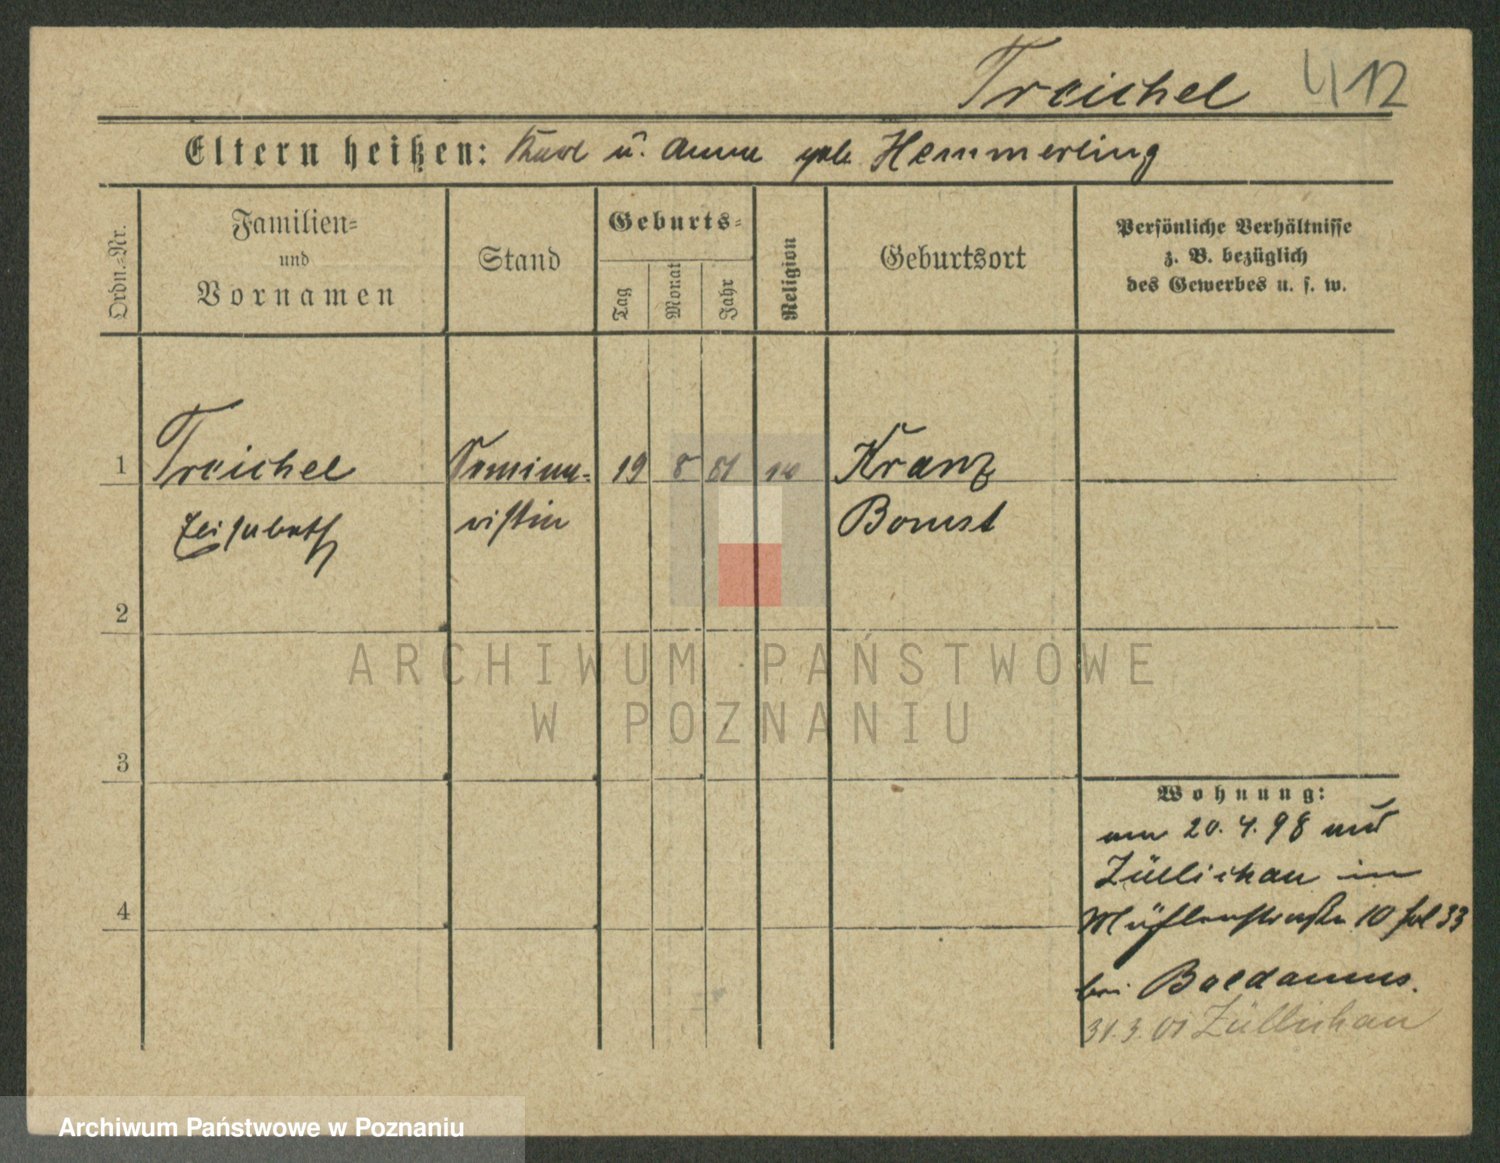 Treichel 412
Eltern heißen: Karl u. Anna geb. Hemmerling
Ordn.=Nr.
Familien=
und
Vornamen
Stand
Geburts=
Tag
Monat
Jahr
Religion
Geburtsort
Persönliche Verhältnisse
z. B. bezüglich
des Gewerbes u. s. w.
1 Treichel Semina= 19 8 81 Kranz
Elisabeth ristin Bomst
2
ARCHIWUM PAŃSTWOWE
W POZNANIU
3
Wohnung:
am 20. 4. 98 aus
Züllichau in
4
Mühlenstraße 10 fol 33
bei Baldamus.
31.3.01 Züllichau
Archiwum Państwowe w Poznaniu